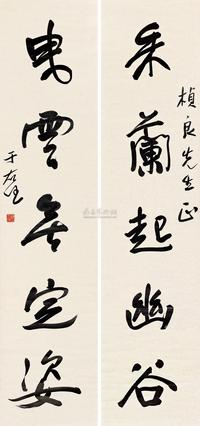 采蘭起幽谷
楨良先生正
曳雲無定姿
于右任